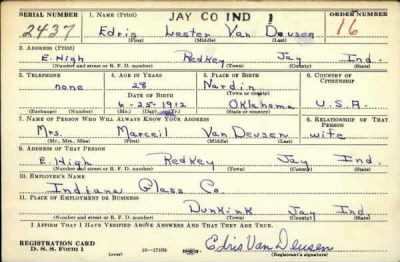 SERIAL NUMBER 1. NAME (Print) JAY CO IND 1 ORDER NUMBER
2437 Edris Lester Van Deusen 16
(First) (Middle) (Last)
2. ADDRESS (Print)
E. High Redkey Jay Ind.
(Number and street or R. F. D. number) (Town) (County) (State)
3. TELEPHONE 4. AGE IN YEARS 5. PLACE OF BIRTH 6. COUNTRY OF CITIZENSHIP
none 28 Nardin
DATE OF BIRTH (Town or county)
6-25-1912 Oklahoma U.S.A.
(Exchange) (Number) (Mo.) (Day) (Yr.) (State or country)
7. NAME OF PERSON WHO WILL ALWAYS KNOW YOUR ADDRESS 8. RELATIONSHIP OF THAT PERSON
Mrs. Marceil Van Deusen wife
(Mr., Mrs., Miss) (First) (Middle) (Last)
9. ADDRESS OF THAT PERSON
E. High Redkey Jay Ind.
(Number and street or R. F. D. number) (Town) (County) (State)
10. EMPLOYER'S NAME
Indiana Glass Co.
11. PLACE OF EMPLOYMENT OR BUSINESS
Dunkirk Jay Ind.
(Number and street or R. F. D. number) (Town) (County) (State)
I AFFIRM THAT I HAVE VERIFIED ABOVE ANSWERS AND THAT THEY ARE TRUE.
REGISTRATION CARD
D. S. S. Form 1 (over) 16—17105 Edris Van Deusen
(Registrant's signature)